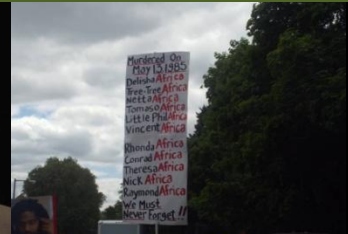 Murdered On
May 13, 1985
Delisha Africa
Tree-Tree Africa
Netta Africa
Tomaso Africa
Little Phil Africa
Vincent Africa
Rhonda Africa
Conrad Africa
Theresa Africa
Nick Africa
Raymond Africa
We Must
Never Forget !!